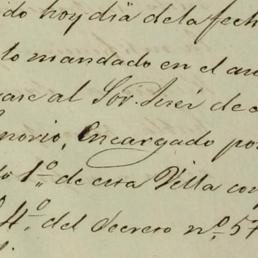 ido hoy dia de la fech
lo mandado en el au
gase al Sor. Juez de
norio, Encargado po
o 1º de esta Villa con
4º del decreto nº 57